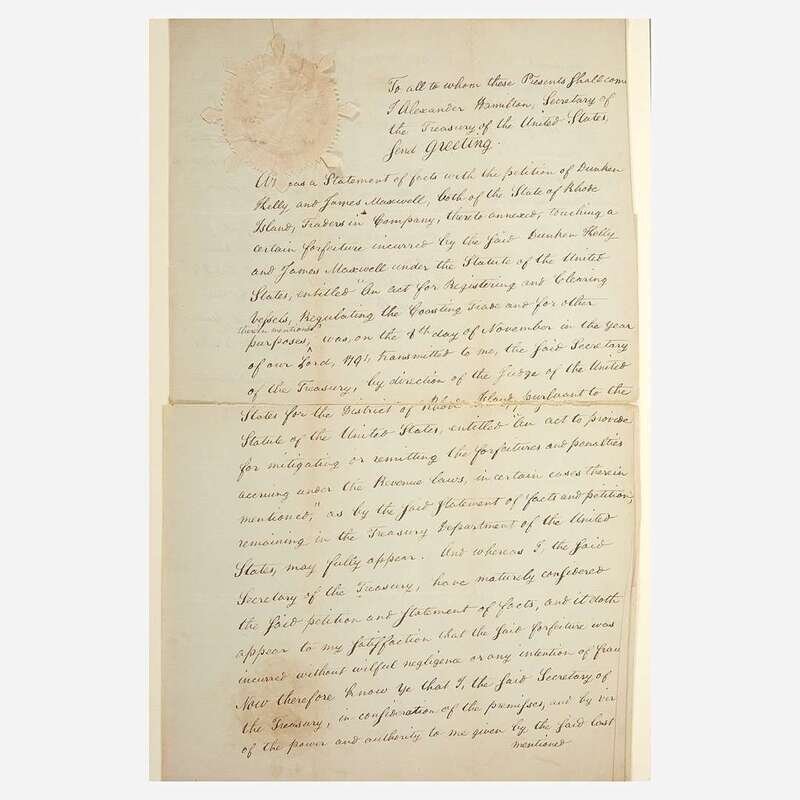 To all to whom these Presents Shall come
I Alexander Hamilton, Secretary of
the Treasury of the United States,
Send Greeting.
a Statement of facts with the petition of Dunken
Kelly and James Maxwell, both of the State of Rhode
Island, Traders in Company, thereto annexed, touching a
certain forfeiture incurred by the said Dunken Kelly
and James Maxwell under the Statute of the United
States, entitled "An act for Registering and Clearing
vessels, Regulating the Coasting Trade and for other
therein mentioned
purposes, was, on the day of November in the Year
of our Lord, 1791, transmitted to me, the said Secretary
of the Treasury, by direction of the Judge of the United
States for the District of Rhode Island, pursuant to the
Statute of the United States, entitled "An act to provide
for mitigating or remitting the forfeitures and penalties
accruing under the Revenue laws, in certain cases therein
mentioned," as by the said Statement of facts and petition,
remaining in the Treasury Department of the United
States, may fully appear. And whereas I, the said
Secretary of the Treasury, have maturely considered
the said petition and Statement of facts, and it doth
appear to my satisfaction that the said forfeiture was
incurred without wilful negligence or any intention of frau
Now therefore know Ye that I, the said Secretary of
the Treasury, in consideration of the premises, and by vir
of the power and authority to me given by the said last
mentioned